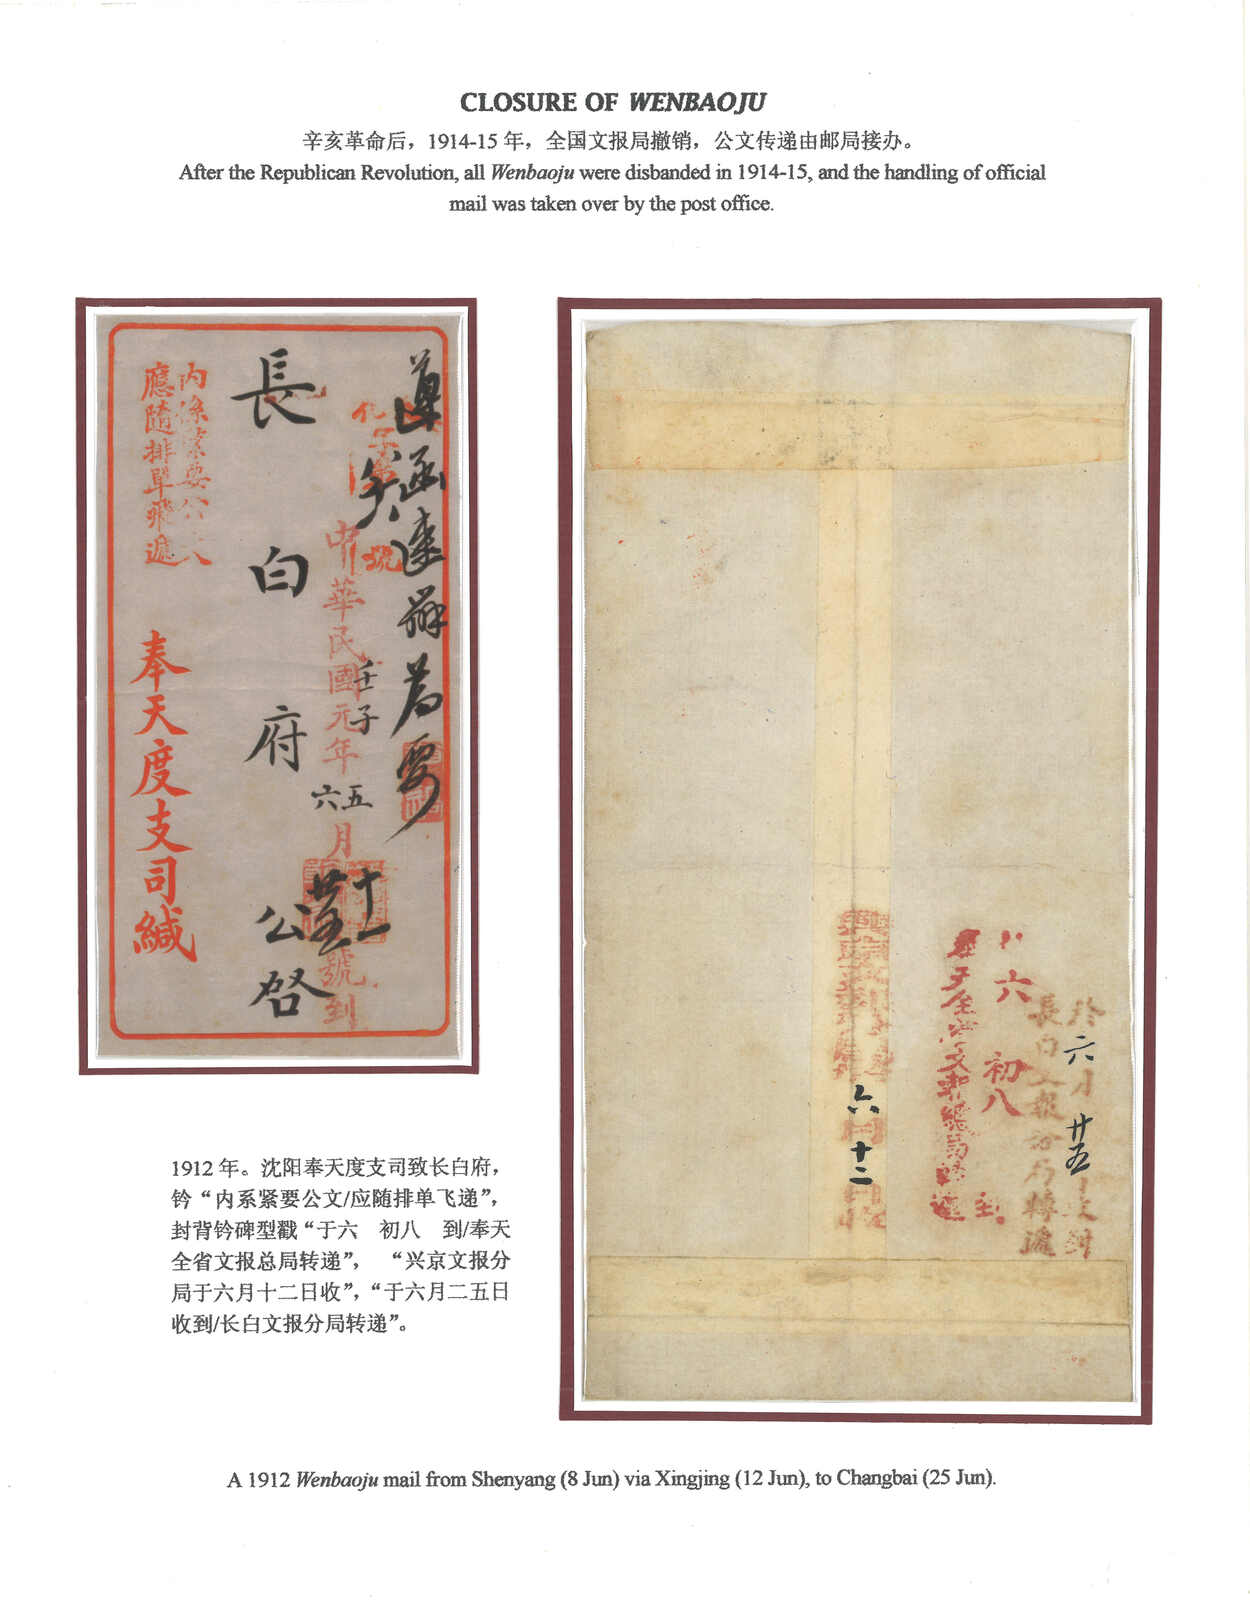 CLOSURE OF WENBAOJU
辛亥革命后，1914-15 年，全国文报局撤销，公文传递由邮局接办。
After the Republican Revolution, all Wenbaoju were disbanded in 1914-15, and the handling of official
mail was taken over by the post office.
內係緊要公文
應隨排單飛遞
奉天度支司緘
長白府公啓
中華民國元年
壬子
五
六
月
十一
號到
為要
號
六
初八
到
奉天全省文報總局轉遞
於六月廿五日收到
長白文報分局轉遞
六月十二
收
1912 年。沈阳奉天度支司致长白府，
钤“内系紧要公文/应随排单飞递”，
封背钤碑型戳“于六 初八 到/奉天
全省文报总局转递”， “兴京文报分
局于六月十二日收”，“于六月二五日
收到/长白文报分局转递”。
A 1912 Wenbaoju mail from Shenyang (8 Jun) via Xingjing (12 Jun), to Changbai (25 Jun).